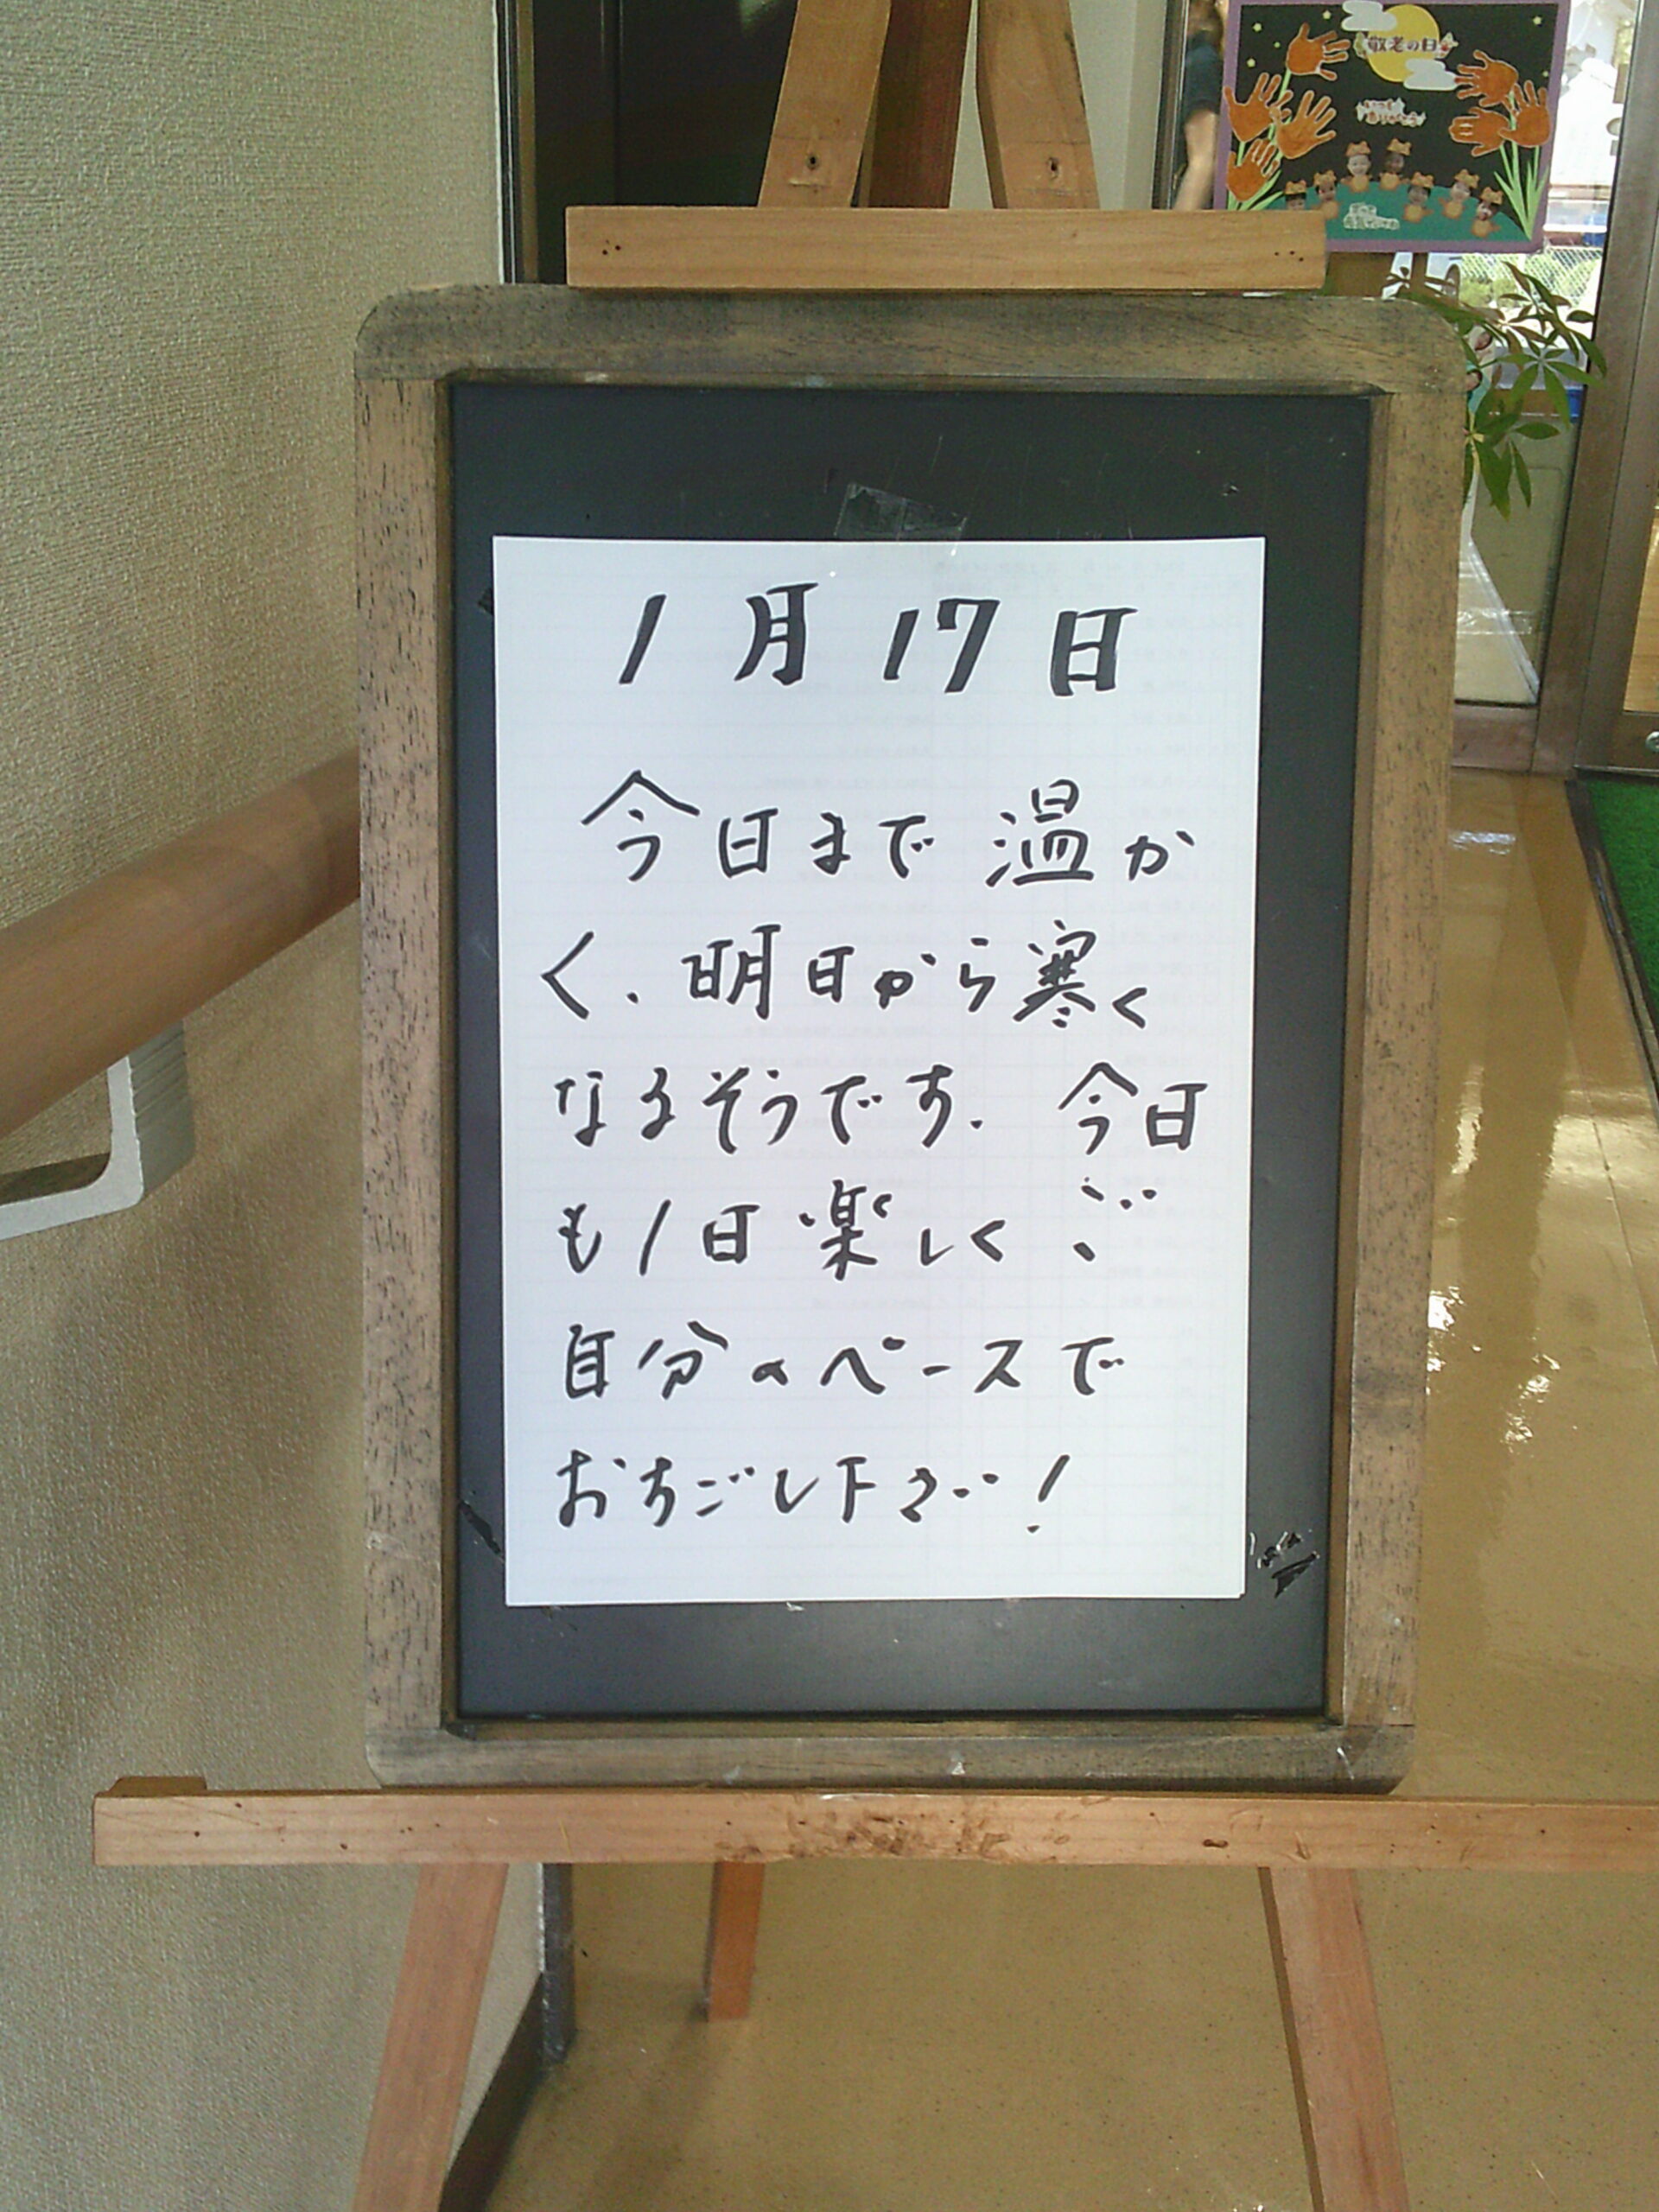 敬老の日
いつも
ありがとう
1月17日
今日まで温か
く、明日から寒く
なるそうです。今日
も1日楽しくご
自分のペースで
おすごし下さい!